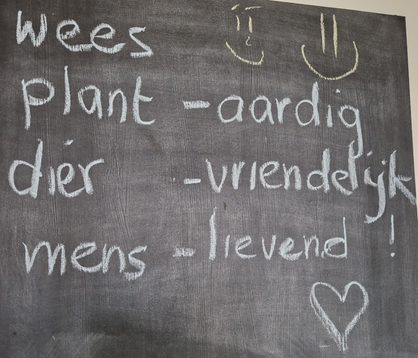 wees
plant - aardig
dier - vriendelijk
mens - lievend !